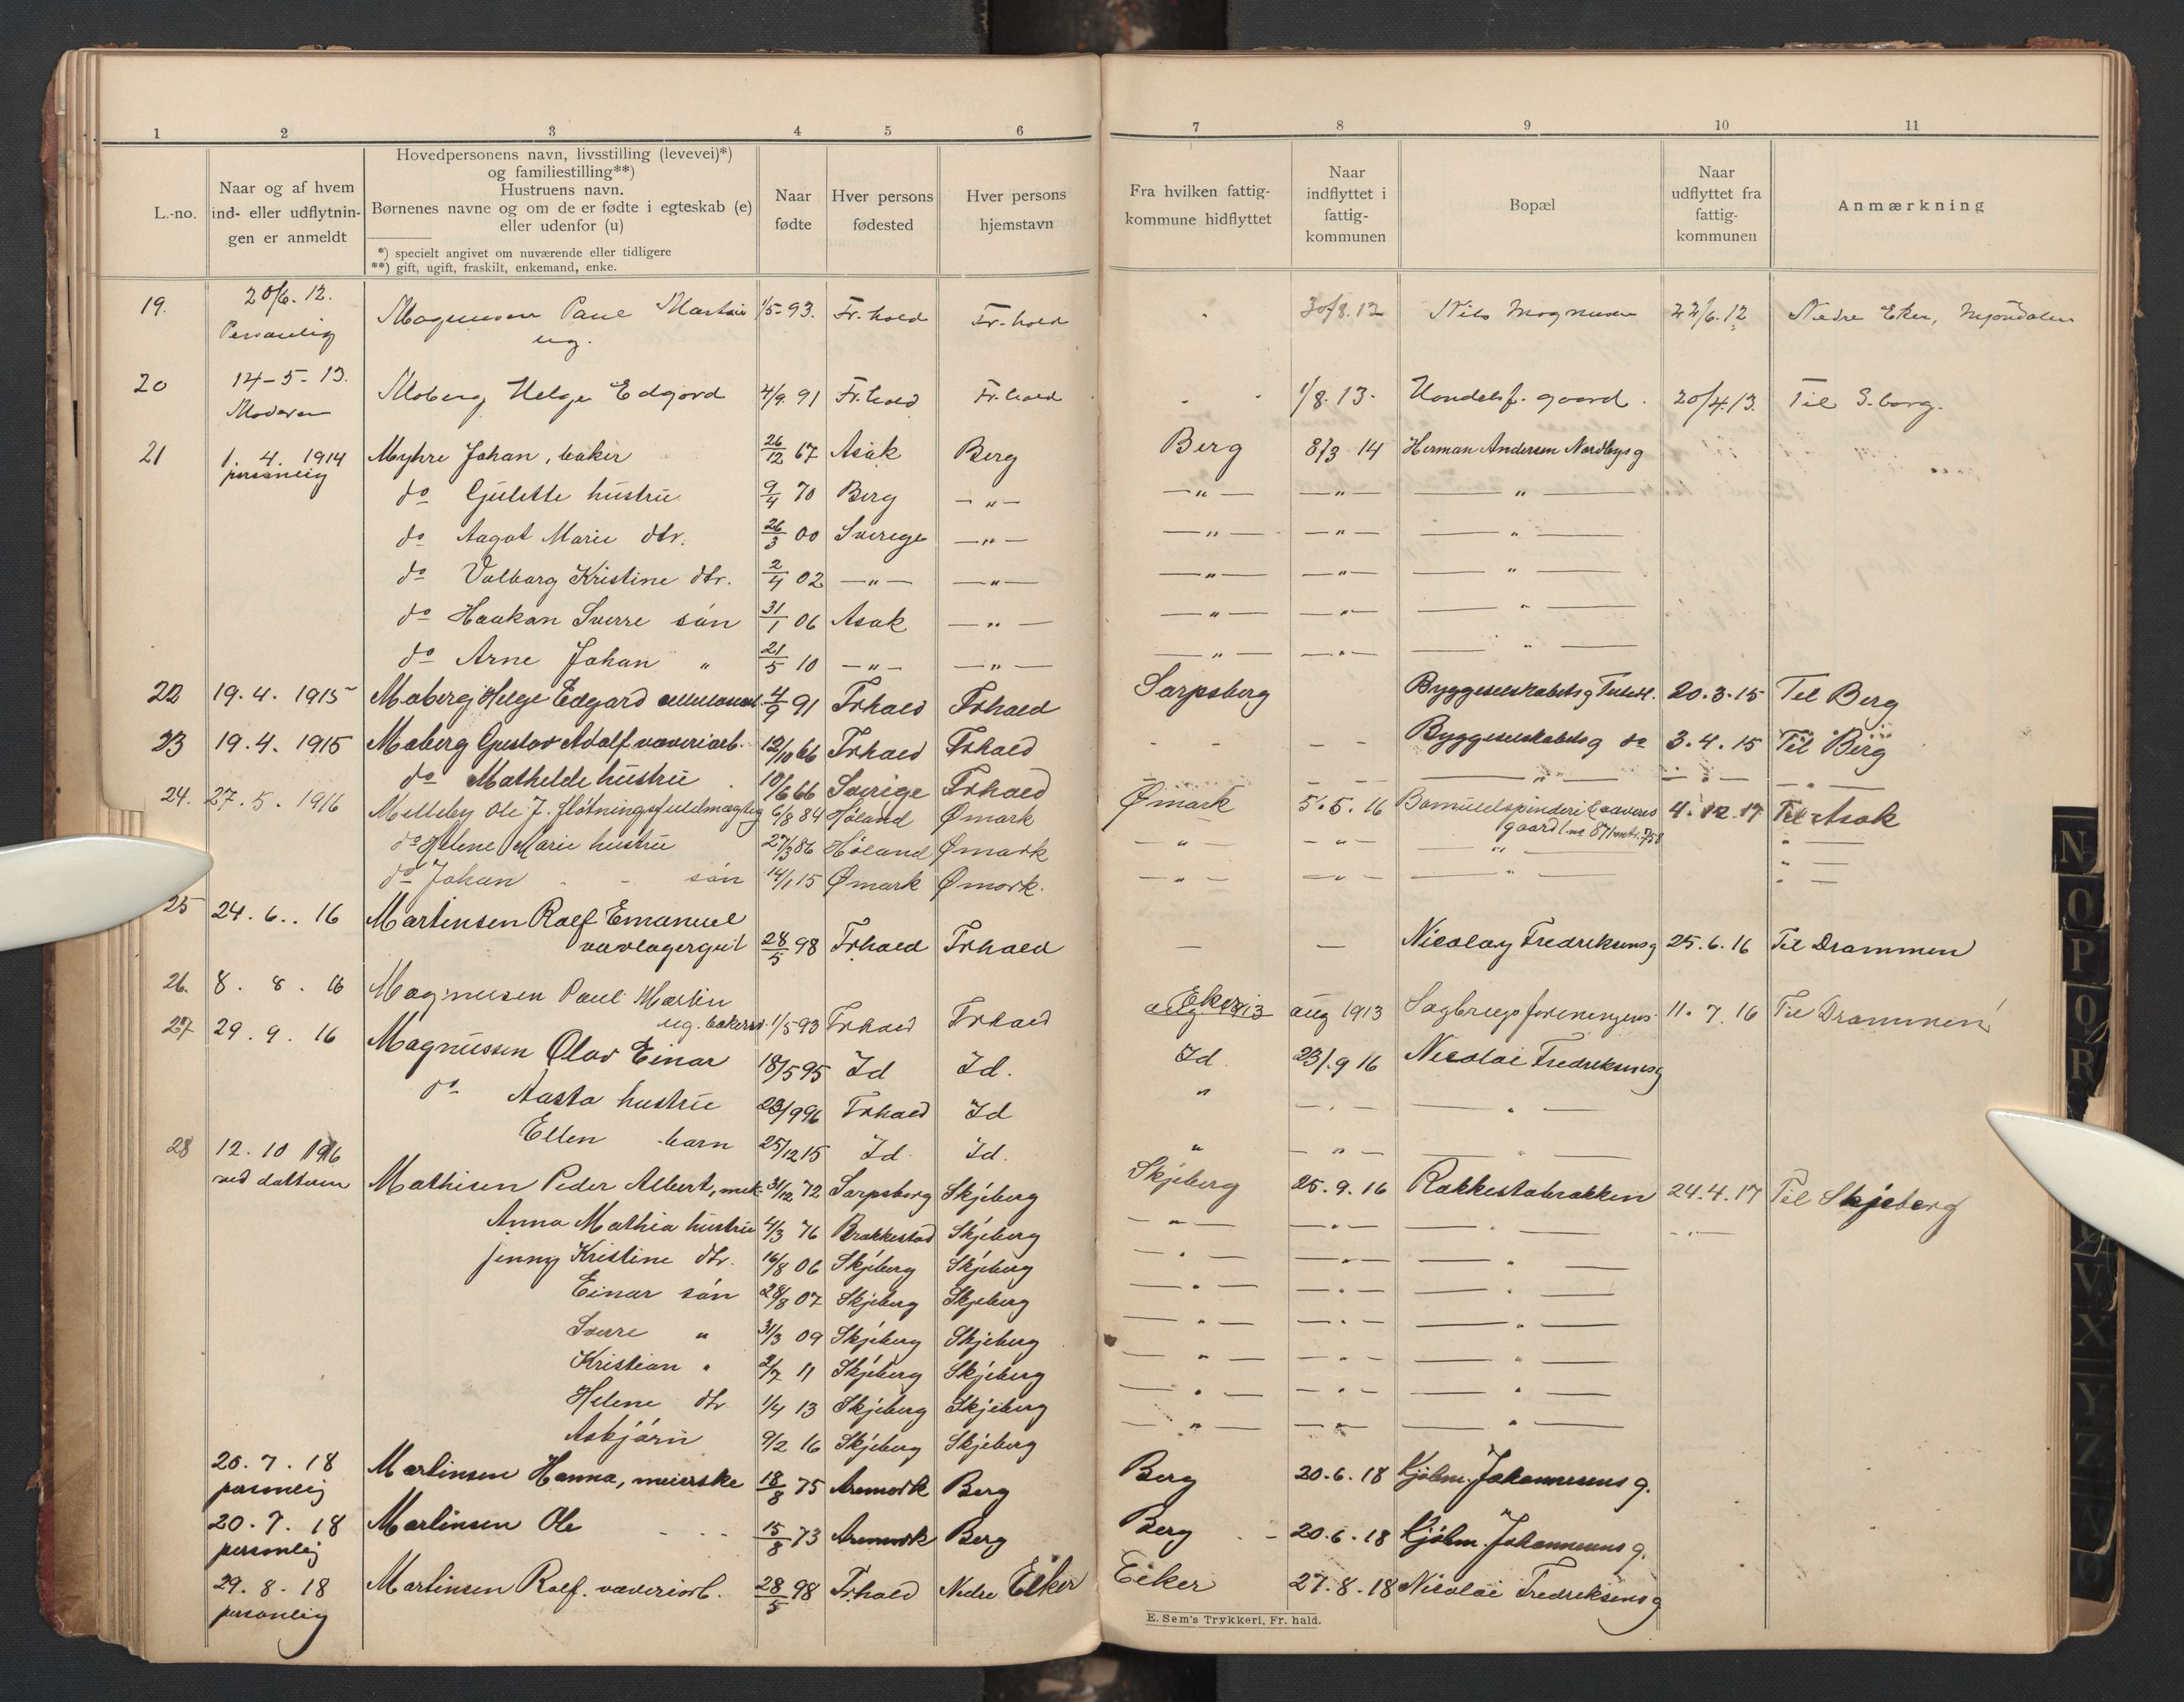 1 2 3 4 5 6 7 8 9 10 11
L.-no.
Naar og af hvem
ind- eller udflytnin-
gen er anmeldt
Hovedpersonens navn, livsstilling (levevei)*)
og familiestilling**)
Hustruens navn.
Børnenes navne og om de er fødte i egteskab (e)
eller udenfor (u)
*) specielt angivet om nuværende eller tidligere
**) gift, ugift, fraskilt, enkemand, enke.
Naar
fødte
Hver persons
fødested
Hver persons
hjemstavn
Fra hvilken fattig-
kommune hidflyttet
Naar
indflyttet i
fattig-
kommunen
Bopæl
Naar
udflyttet fra
fattig-
kommunen
Anmærkning
19. 20/6. 12. Magnussen Paul Martin 1/5-93. Fr.hald Fr.hald 30/8.12 Nils Magnussen 22/6.12 Nedre Eker, Mjøndalen
Personlig ug.
20 14-5-13. Moberg Helge Edgard 4/9. 91 Fr.hald Fr.hald 1/8. 13. gaard. 20/4.13. Til S.borg.
Moderen
21 1. 4. 1914 Myhre Johan, baker 26/12 67 Asak Berg Berg 8/3 14 Herman Andersen Nordbysg
personlig
do Gulette hustru 9/4 70 Berg —"— —"— —"— —"—
do Aagot Marie dtr. 26/3 00 Sverige —"— —"— —"— —"—
do Valborg Kristine dtr. 2/4 02 —"— —"— —"— —"— —"—
do Haakon Sverre søn 31/1 06 Asak —"— —"— —"— —"—
do Arne Johan " 21/5 10 —"— —"— —"— —"— —"—
22 19. 4. 1915 Moberg Helge Edgard 4/9 91 Frhald Frhald Sarpsborg Byggeselskabets g 20.3.15 Til Berg
23 19. 4. 1915 Moberg Gustav Adolf væveriarb. 12/10 66 Frhald Frhald - - - - Byggeselskabets g do 3.4.15 Til Berg
do Mathilde hustru 10/6 66 Sverige Frhald — — —"— —"— —"—
24. 27. 5. 1916 Melleby Ole J. fløtningsfuldmægtig 6/8 84 Høland Ømark Ømark 5.5.16 Bomuldspinderi 4.12.17 Til Asak
gaard
do Helene Marie hustru 27/3 86 Høland Ømark —"— —"— —"— —"—
do Johan søn 14/1 15 Ømark Ømark. —"— —"— —"— —"—
25 24. 6. 16 Martinsen Rolf Emanuel
varlagergut 28/5 98 Frhald Frhald — — Nicolay Fredriksensg 25.6.16 Til Drammen
26. 8. 8. 16 Magnussen Paul Martin
ug. bakersv. 1/5 93 Frhald Frhald Eker aug 1913 aug 1913 Sagbrugsforeningens 11.7.16 Til Drammen
27 29. 9. 16 Magnussen Olav Einar 18/5 95 Id Id. Id. 23/9 16 Nicolai Fredriksensg
do Aasta hustru 23/9 96 Frhald Id " —"— —"—
Ellen barn 25/12 15 Id Id. " —"— —"—
28 12. 10 1916 Mathisen Peder Albert, 31/12 72 Sarpsborg Skjeberg Skjeberg 25.9.16 Rakkestabrakken 24.4.17 Til Skjeberg
ved datteren
Anna Mathia hustru 4/3 76 Skjeberg —"— —"— —"— —"—
Jenny Kristine dtr. 16/8 06 Skjeberg Skjeberg —"— —"— —"—
Einar søn 28/8 07 Skjeberg Skjeberg —"— —"— —"—
Sverre " 31/3 09 Skjeberg Skjeberg —"— —"— —"—
Kristian " 2/7 11 Skjeberg Skjeberg —"— —"— —"—
Helene dtr 1/4 13 Skjeberg Skjeberg —"— —"— —"—
Asbjørn 9/2 16 Skjeberg Skjeberg —"— —"— —"—
20. 7. 18 Martinsen Hanna, meierske 18/8 75 Aremark Berg Berg 20.6.18 Kjøbm. Johannesens g.
personlig
20. 7. 18 Martinsen Ole 15/8 73 Aremark Berg Berg 20.6.18 Kjøbm. Johannesens g.
personlig
29. 8. 18 Martinsen Rolf. væveriarb. 28/5 98 Fr.hald Nedre Eiker Eiker 27.8.18 Nicolai Fredriksensg
personlig
E. Sem's Trykkeri, Fr. hald.
N
O
P
Q
R
V
X
Y
Z